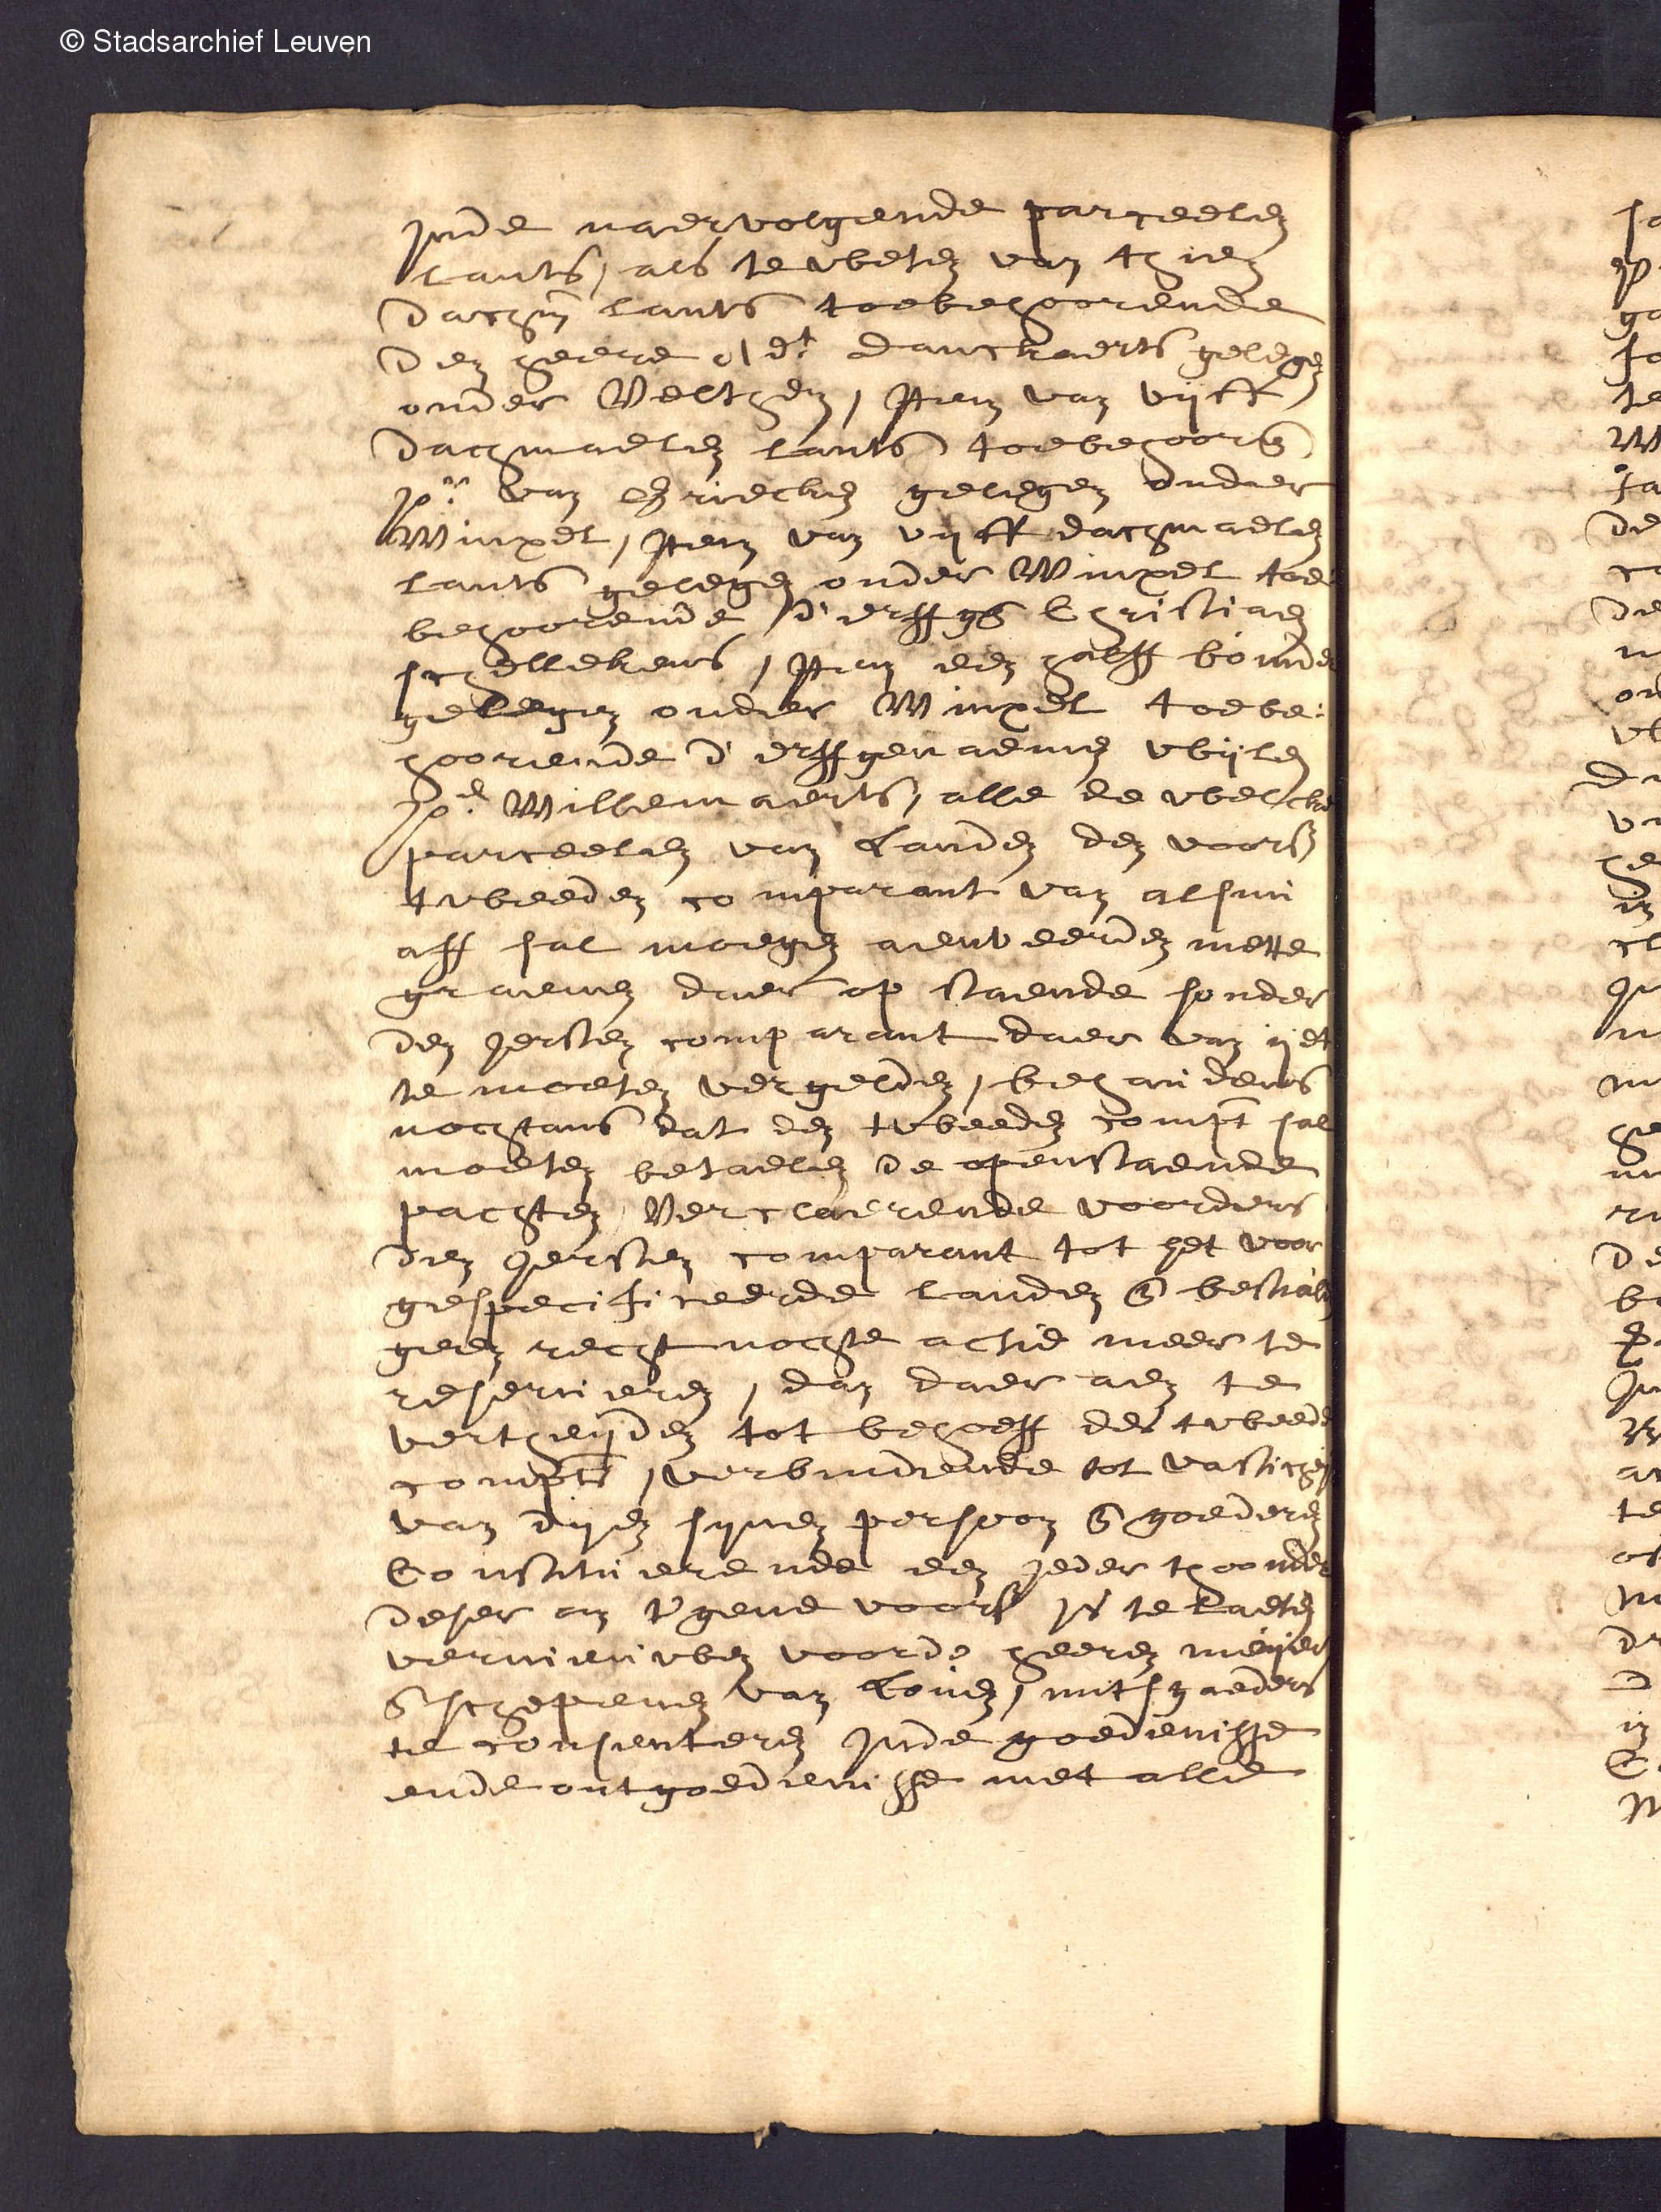 © Stadsarchief Leuven
Inde naervolgende parceelen
lants, als te weten van thien
dachm lants toebehoorende
den heere Danckaerts gelegen
onder Velthem, Item van vijff
dachmaelen lants toebehoor
Jor van gelegen onder
Winxel, Item van vijff dachmaelen
lants gelegen onder Winxel toe
behoorende d'erffg Christiaen
schellekens, Item een halff bonder
gelegen onder Winxel toebe:
hoorende d'erffgenaemen wijlen
Willemaerts, alle de welcke
parceelen van Landen den voors
tweeden comparant van alsnu
aff sal moegen aenveerden mette
graenen daer op staende sonder
den Iersten comparant daer van ijet
te moeten vergelden, behaudens
nochtans dat den tweeden compt sal
moeten betaelen de openstaende
pachten Verclaerende voorders
den Iersten comparant tot het voor
gespecificeerde landen en bestiael
geen recht nochte actie meer te
reserveren, dan daer aen te
verthijden tot behoeff des tweede
compts, verbindende tot vasticheyt
van dijen sijnen persoon en goederen
Constituerende een Ieder thoonder
deser om t'gene voors is te laeten
vernieuwen voor de heeren meijer
en schepenen van Loven, mitsgaders
te consenteren Inde goedenisse
ende ontgoedenisse met alle